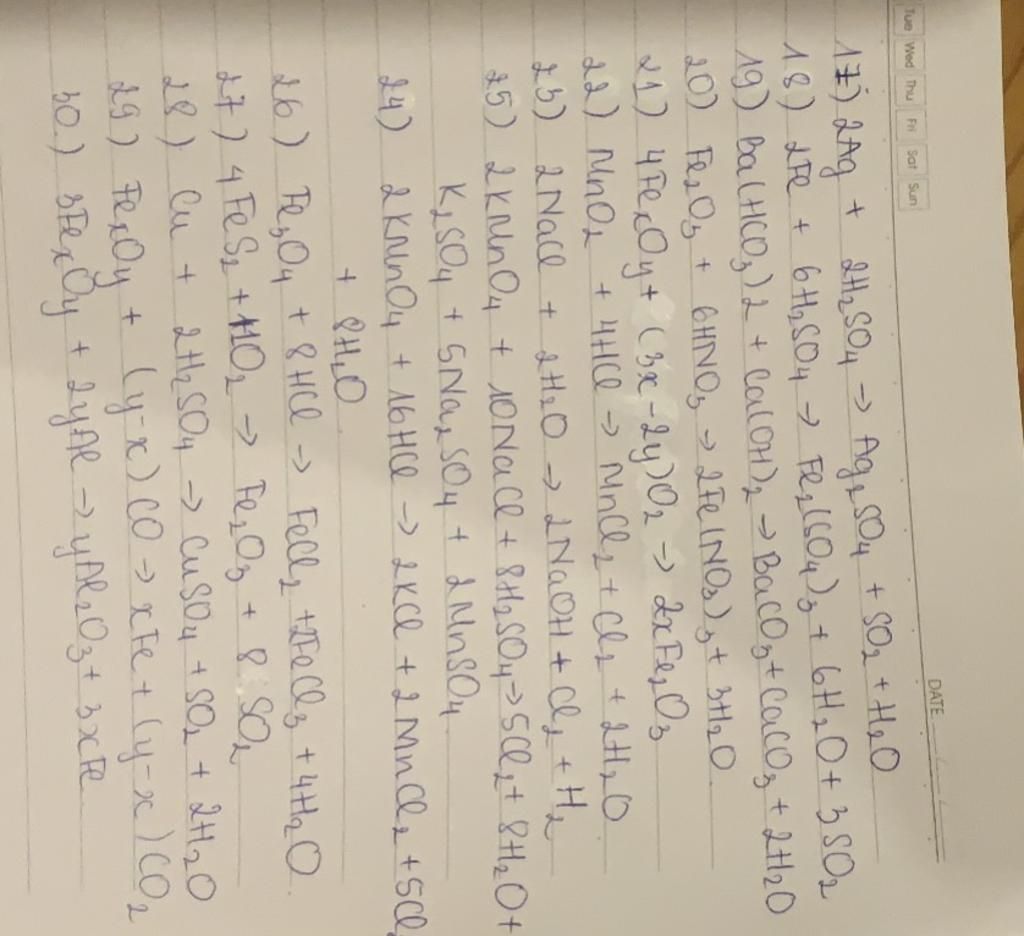 Tue Wed Thu Fri Sat Sun
DATE
17) 2Ag + 2H₂SO₄ → Ag₂SO₄ + SO₂ + H₂O
18) 2Fe + 6H₂SO₄ → Fe₂(SO₄)₃ + 6H₂O + 3SO₂
19) Ba(HCO₃)2 + Ca(OH)₂ → BaCO₃ + CaCO₃ + 2H₂O
20) Fe₂O₃ + 6HNO₃ → 2Fe(NO₃)₃ + 3H₂O
21) 4FeₓOy + (3x - 2y)O₂ → 2xFe₂O₃
22) MnO₂ + 4HCl → MnCl₂ + Cl₂ + 2H₂O
23) 2NaCl + 2H₂O → 2NaOH + Cl₂ + H₂
25) 2KMnO₄ + 10NaCl + 8H₂SO₄ → 5Cl₂ + 8H₂O +
K₂SO₄ + 5Na₂SO₄ + 2MnSO₄
24) 2KMnO₄ + 16HCl → 2KCl + 2MnCl₂ + 5Cl₂
+ 8H₂O
26) Fe₃O₄ + 8HCl → FeCl₂ + 2FeCl₃ + 4H₂O.
27) 4FeS₂ + 11O₂ → Fe₂O₃ + 8SO₂
28) Cu + 2H₂SO₄ → CuSO₄ + SO₂ + 2H₂O
29) FeₓOy + (y-x)CO → xFe + (y-x)CO₂
30.) 3FeₓOy + 2yAl → yAl₂O₃ + 3xFe